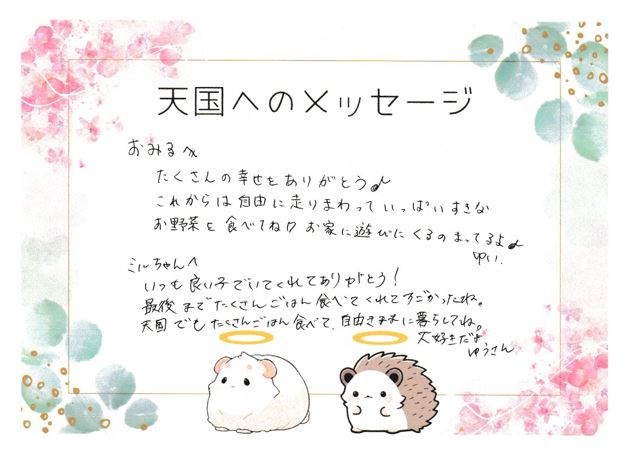 天国へのメッセージ
おみるへ
たくさんの幸せをありがとう♪
これからは自由に走りまわっていっぱいすきな
お野菜を食べてね♡ お家に遊びにくるのまってるよ♪
ゆい.
ミルちゃんへ
いつも良い子でいてくれてありがとう!
最後までたくさんごはん食べてくれてすごかったね。
天国でもたくさんごはん食べて、自由きままに暮らしてね。
大好きだよ
ゆうさん